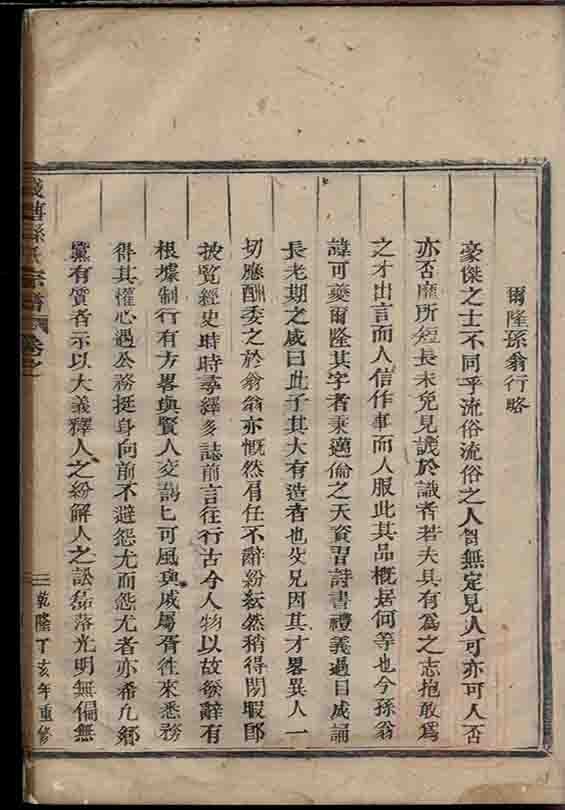 爾隆孫翁行略
豪傑之士不同乎流俗流俗之人智無定見人可亦可人否
亦否靡所短長未免見譏於識者若夫具有為之志抱敢為
之才出言而人信作事而人服此其品概居何等也今孫翁
諱可藥爾隆其字者秉邁倫之天資習詩書禮義過目成誦
長老期之咸曰此子其大有造者也父兄因其才畧異人一
切應酬委之於翁翁亦慨然肩任不辭紛紜然稍得閒暇即
披覽經史時時尋繹多誌前言往行古今人物以故發辭有
根據制行有方畧與賢人交謁匕可風與戚屬胥往來悉務
得其懽心遇公務挺身向前不避怨尤而怨尤者亦希凡鄉
黨有質者示以大義釋人之紛解人之訟磊落光明無偏無
孫氏宗譜 卷之
乾隆丁亥年重修